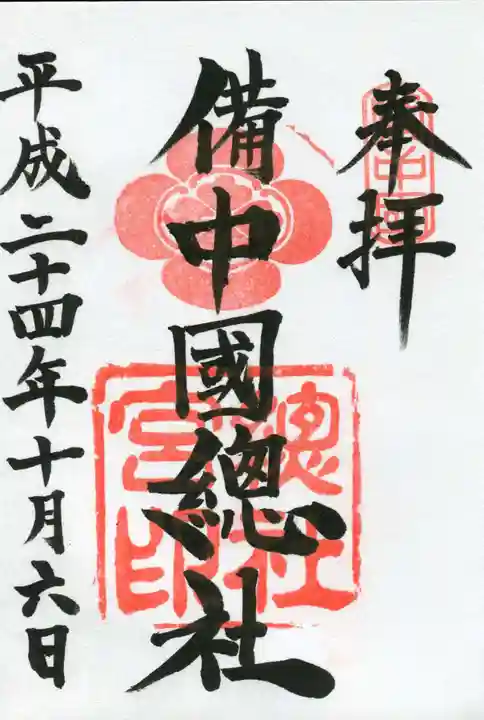 奉拝
備中國總社
總社
宮印
平成二十四年十月六日